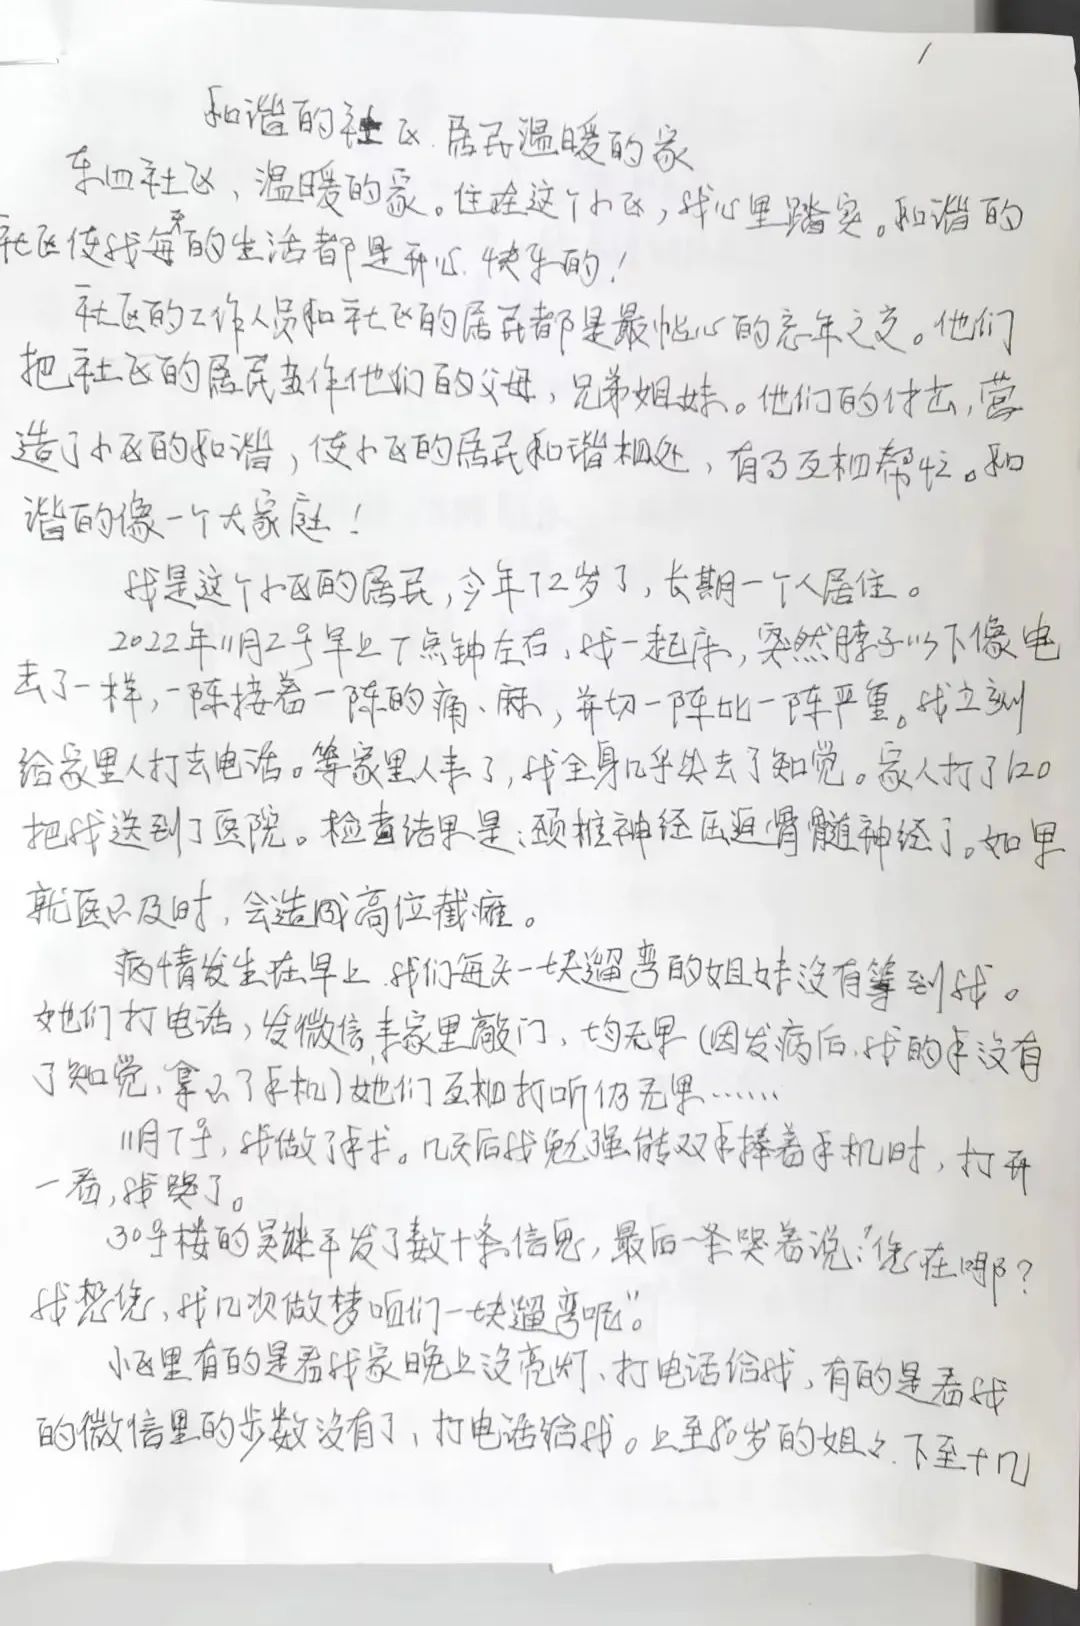 1
和谐的社区.居民温暖的家
东四社区、温暖的家。住在这个小区,我心里踏实。和谐的
社区使我每天的生活都是开心.快乐的!
社区的工作人员和社区的居民都是最帖心的忘年之交。他们
把社区的居民当作他们的父母,兄弟姐妹。他们的付出,营
造了小区的和谐,使小区的居民和谐相处,有了互相帮忙。和
谐的像一个大家庭!
我是这个小区的居民,今年72岁了,长期一个人居住。
2022年11月2号早上7点钟左右,我一起床,突然脖子以下像电
去了一样,一阵接着一阵的痛、麻,并切一阵比一阵严重。我立刻
给家里人打去电话。等家里人来了,我全身几乎失去了知觉。家人打了120
把我送到了医院。检查结果是:颈椎神经压迫骨髓神经了。如果
就医不及时,会造成高位截瘫。
病情发生在早上.我们每天一块遛弯的姐妹没有等到我。
她们打电话,发微信,来家里敲门、均无果(因发病后.我的手没有
了知觉、拿不了手机)她们互相打听仍无果……
11月7号,我做了手术。几天后我勉强能双手捧着手机时,打开
一看,我哭了。
30号楼的吴继平发了数十条信息,最后一条哭着说:“您在哪?
我想您,我几次做梦咱们一块遛弯呢”。
小区里有的是看我家晚上没亮灯、打电话给我,有的是看我
的微信里的步数没有了,打电话给我。上至80岁的姐々.下至十几